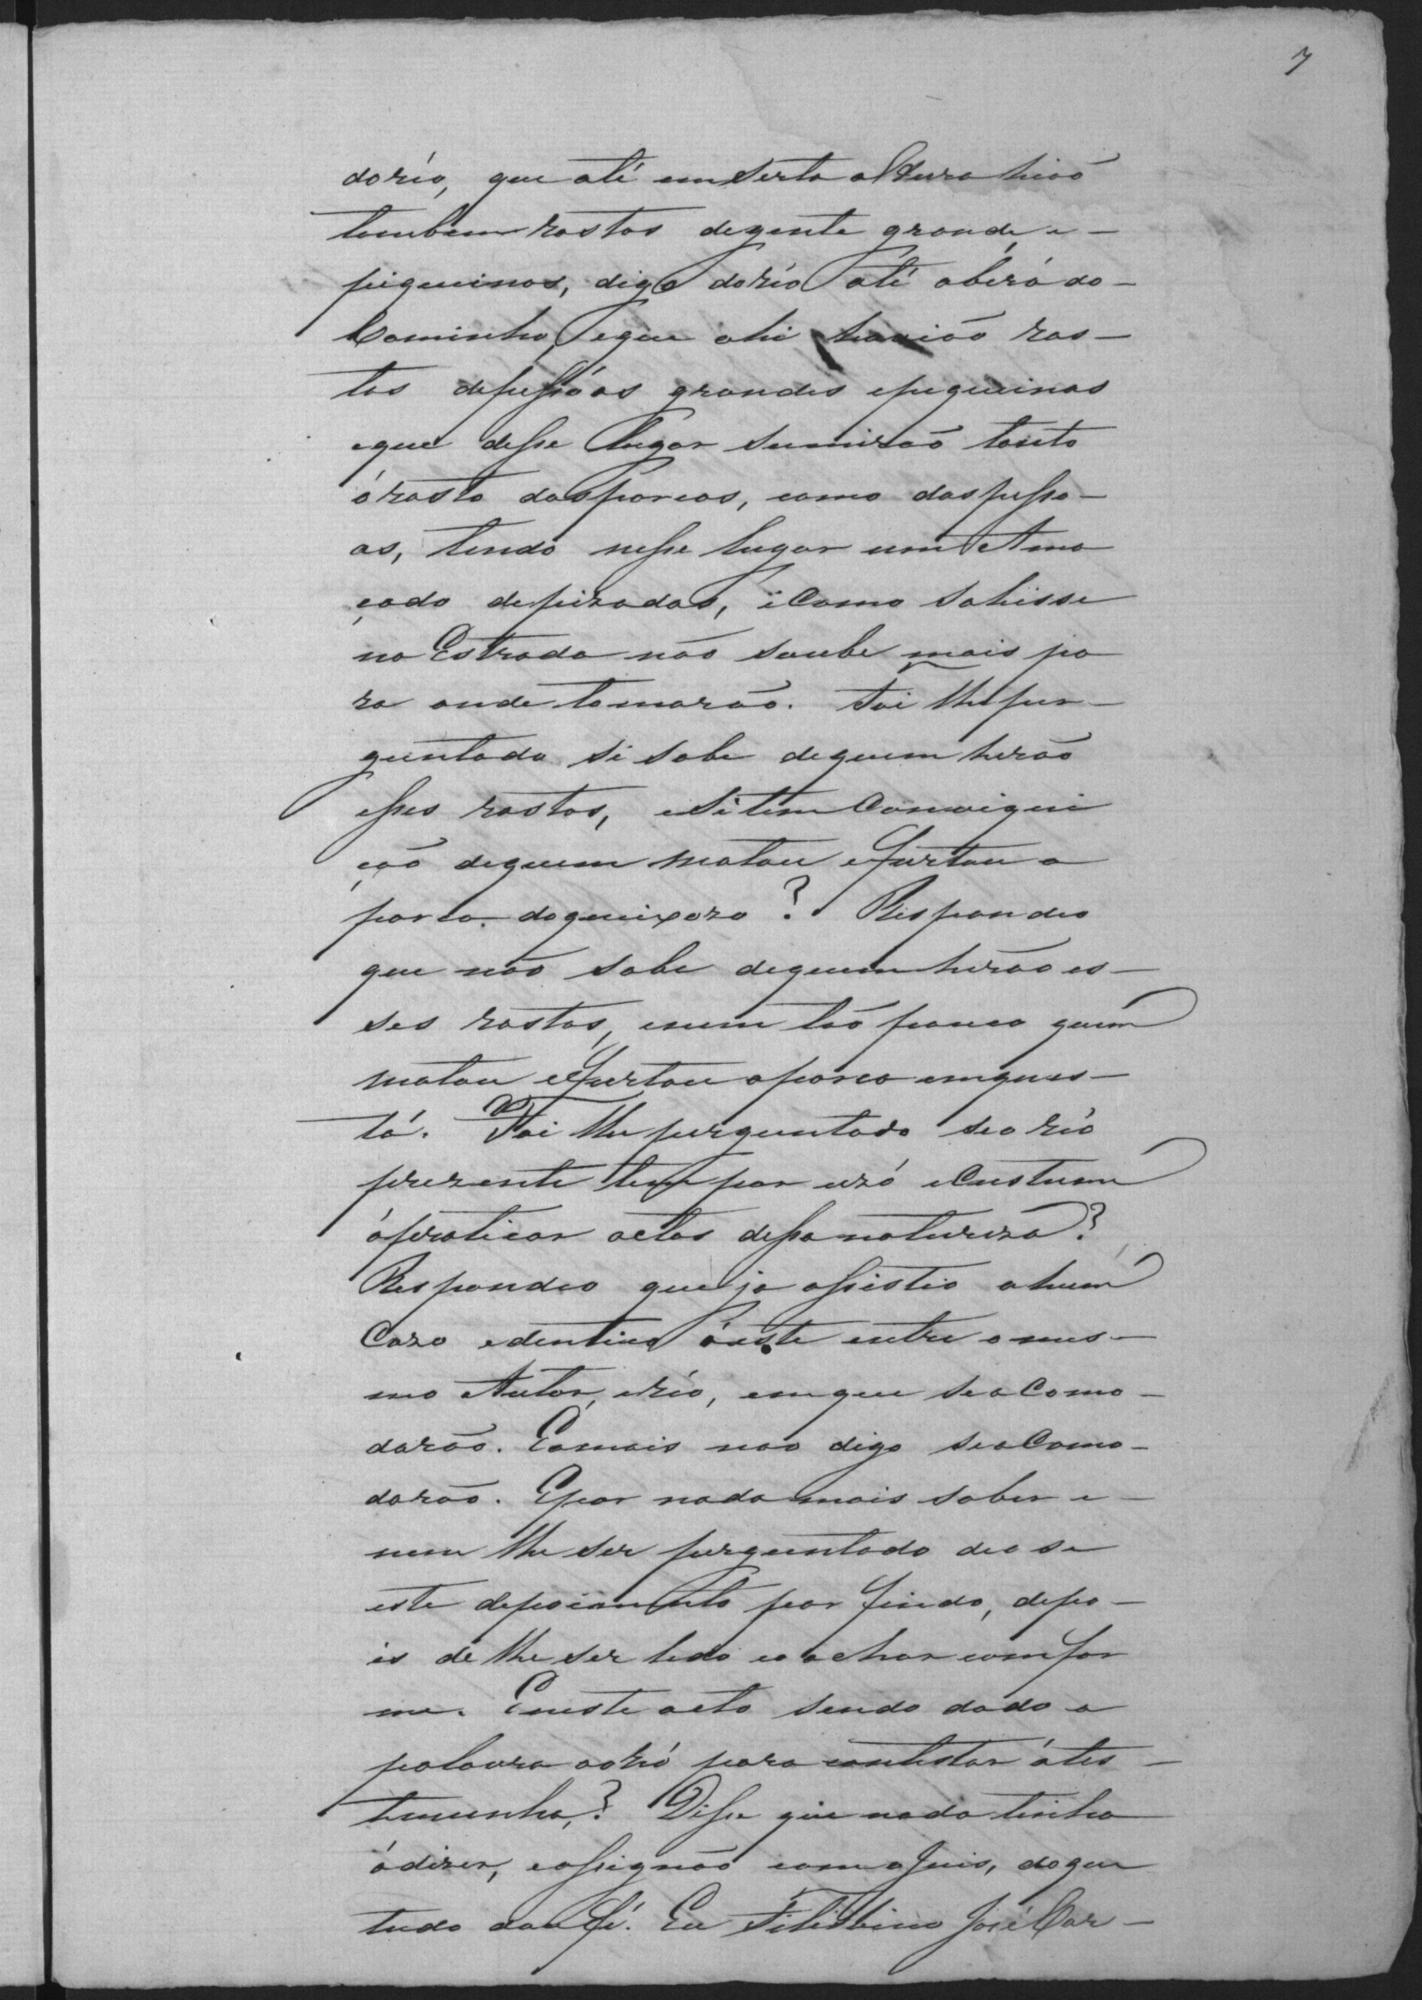 7
do rio, que até em serta altura hião
tambem rastos de gente grande, e -
piquinos, digo do rio até abéra do -
Caminho, e que ahi havião ras -
tos depessôas grandes e piquinas
eque desse lugar sumirão tanto
ó rasto dos porcos, como das pesso -
as, tendo nesse lugar um Ama
çado de pizadas, e Como sahisse
na Estrada não soube mais pa
ra onde tomarão. Foi lhe per -
guntado si sabe de quem herão
esses rastos, e Si tem Convicqui
ção dequem matou e furtou a
porca do queixozo? Respondeo
que não sabe dequem herão es -
ses rastos, nem tão pouco quem
matou e furtou a porca emques -
tá. Foi lhe perguntado se o réo
prezente tem por uzó e Custume
ó praticar actos dessa natureza?
Respondeo que ja assistio a hum
Cazo edentico á este entre o mes -
mo Autor, e réo, em que se acomo -
darão. E a mais nao digo se aComo -
darão. E por nada mais saber e -
nem lhe ser perguntado deo se
este depoiamento por findo, depo -
is de lhe ser lido e o achar comfor
me. E neste acto sendo dado a
palavra ao réo para contestar á tes -
temunha,? Disse que nada tinha
á dizer, e assignão com o Juis, do que
tudo dou fé. Eu Filisbino José Car -